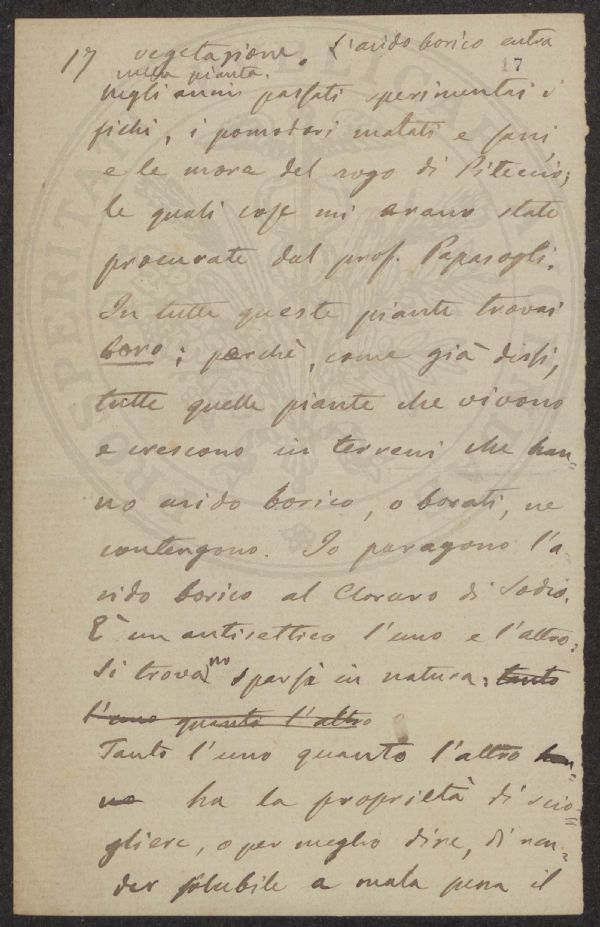 17 vegetazione. L'acido borico entra
17
nella pianta.
negli anni passati sperimentai i
fichi, i pomodori malati e sani,
e le more del rogo di Piteccio;
le quali cose mi erano state
procurate dal prof. Papasogli.
In tutte queste piante trovai
boro; perchè, come già dissi,
tutte quelle piante che vivono
e crescono in terreni che han-
no acido borico, o borati, ne
contengono. Io paragono l'a-
cido borico al Cloruro di Sodio.
È un antisettico l'uno e l'altro:
si trovano sparsi in natura: tanto
l'uno quanto l'altro
Tanto l'uno quanto l'altro han-
no ha la proprietà di scio-
gliere, o per meglio dire, di ren-
der solubile a mala pena il